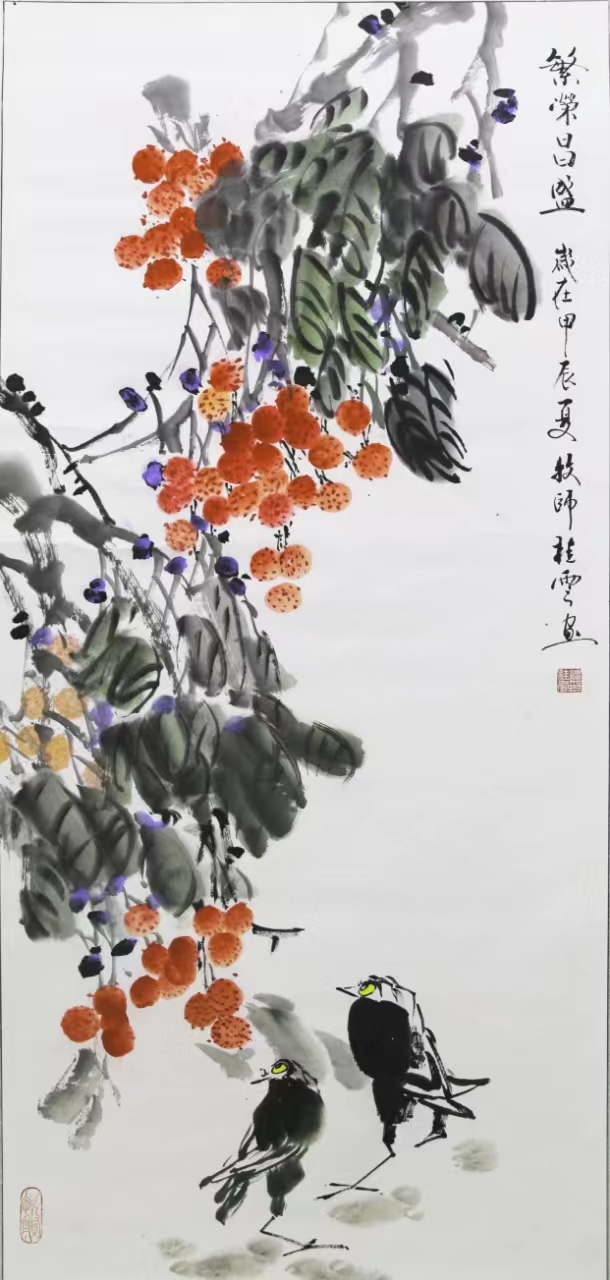 繁榮昌盛
歲在甲辰夏牧師桂雲画